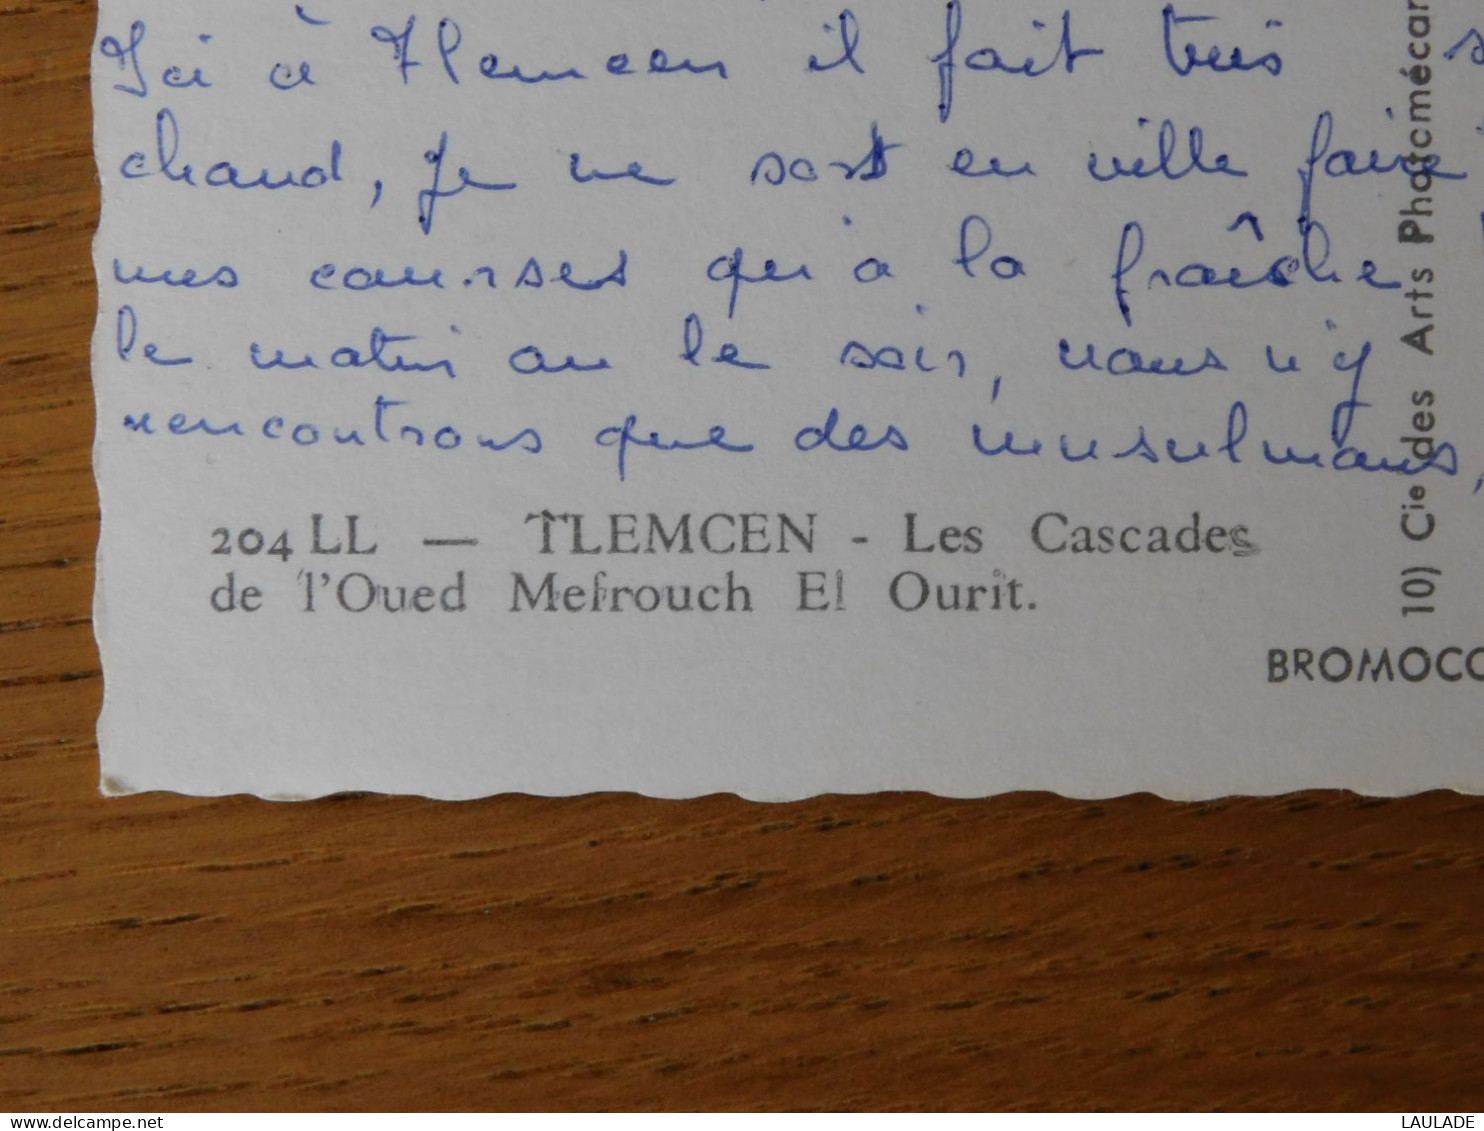 Ici à Tlemcen il fait très
chaud, Je ne sort en ville faire
mes courses qu'a la fraîche
le matin ou le soir, nous n'y
rencontrons que des musulmans,
204 LL — TLEMCEN - Les Cascades
de l'Oued Mefrouch El Ourit.
10) Cie des Arts Photomécan
BROMOCO
www.delcampe.net
LAULADE